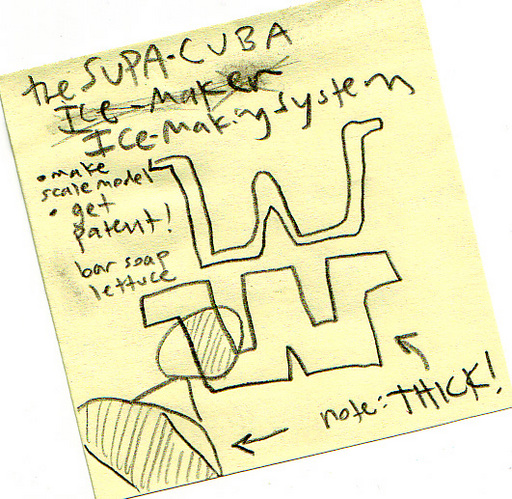 the SUPA-CUBA
Ice-Maker
Ice-Making System
• make
scale model
• get
patent!
bar soap
lettuce
note: THICK!